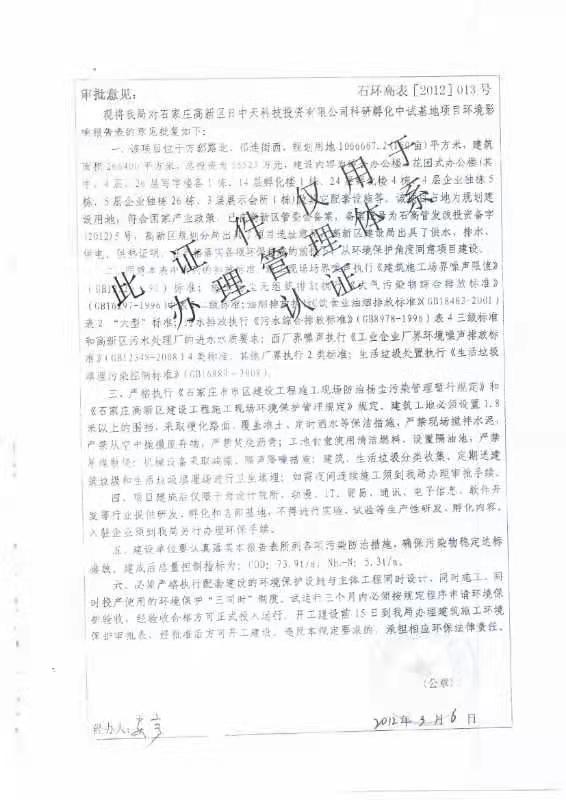 审批意见： 石环高表［2012］013号
现将我局对石家庄高新区日中天科技投资有限公司科研孵化中试基地项目环境影
响报告表的意见批复如下：
一、该项目位于万郡路北、祁连街西，规划用地1066667. 平方米，建筑
面积266400平方米，总投资为55523万元，建设内容为 办公楼、花园式办公楼(其
中，4层、26层写字楼各1栋、14层孵化楼1栋、24层 化楼4栋、4层企业独栋5
栋、5层企业独栋26栋、3层展示会所1栋)及 配套设施等。该项目占地为规划建
设用地，符合国家产业政策，已 高新区管委会备案，备案证号为石高管发投资备字
(2012)5号，高新区规划分局出具 项目选址意 高新区建设局出具了供水、排水、
供电、供热证明。 落实各项环保措施的前提下，从环境保护角度同意项目建设。
二、 现场场界噪声执行《建筑施工场界噪声限值》
标准； 无组织排放执行《大气污染物综合排放标准》
(GB16297-1996) 二级标准；油烟排放执行《饮食业油烟排放标准》(GB18483-2001)
表2 “大型”标准；污水排放执行《污水综合排放标准》(GB8978-1996)表4三级标准
和高新区污水处理厂的进水水质要求；西厂界噪声执行《工业企业厂界环境噪声排放标
准》(GB12348-2008)4类标准，其他厂界执行2类标准；生活垃圾处置执行《生活垃圾
填埋污染控制标准》(GB16889-2008)。
三、严格执行《石家庄市市区建设工程施工现场防治扬尘污染管理暂行规定》和
《石家庄高新区建设工程施工现场环境保护管理规定》规定，建筑工地必须设置1.8
米以上的围挡，采取硬化路面、覆盖堆土、定时洒水等保洁措施，严禁现场搅拌水泥，
严禁从空中抛撒废弃物，严禁焚烧沥青；工地食堂使用清洁燃料，设置隔油池，严禁
茶炉散烧；机械设备采取减振、隔声降噪措施；建筑、生活垃圾分类收集，定期送建
筑垃圾和生活垃圾填埋场进行卫生填埋；如需夜间连续施工须到我局办理审批手续。
四、项目建成后仅限于为设计院所、动漫、IT、贸易、通讯、电子信息、软件开
发等行业提供研发、孵化和总部基地，不得进行实验、试验等生产性研发、孵化内容。
入驻企业须到我局另行办理环保手续。
五、建设单位要认真落实本报告表所列各项污染防治措施，确保污染物稳定达标
排放。建成后总量控制指标为：COD：73.91t/a；NH₃-N：5.31t/a。
六、必须严格执行配套建设的环境保护设施与主体工程同时设计、同时施工、同
时投产使用的环境保护“三同时”制度。试运行三个月内必须按规定程序申请环境保
护验收，经验收合格方可正式投入运行。开工建设前15日到我局办理建筑施工环境
保护审批表，经批准后方可开工建设。违反本规定要求的，承担相应环保法律责任。
(公章)
经办人： 2012年3月6日
此证件仅用于
办理管理体系
认证